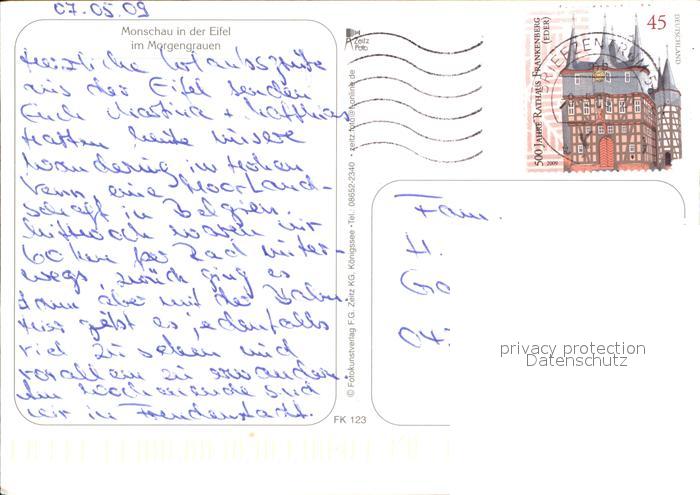 07.05.09
Monschau in der Eifel
im Morgengrauen
Herzliche Urlaubsgrüße
aus der Eifel senden
Euch Martina + Matthias
Hatten heute unsere
Wanderung im Hohen
Venn eine Moorland-
schaft in Belgien.
Mittwoch waren wir
60 km per Rad unter-
wegs, zurück ging es
dann aber mit der Bahn.
Hier gibt es jedenfalls
viel zu sehen und
vor allem zu erwandern.
Am Wochenende sind
wir in Freudenstadt.
FK 123
Zeitz
Foto
© Fotokunstverlag F.G. Zeitz KG, Königssee • Tel. 08652-2340 • zeitz.foto@t-online.de
500 JAHRE RATHAUS FRANKENBERG
(EDER)
45
DEUTSCHLAND
2009
BRIEFZENTRUM
Fam.
H.
Go
04
privacy protection
Datenschutz